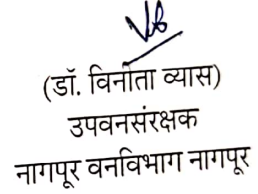 (डॉ. विनीता व्यास)
उपवनसंरक्षक
नागपूर वनविभाग नागपूर